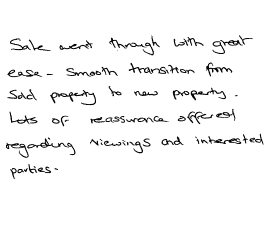 Sale went through with great
ease - Smooth transition from
Sold property to new property.
Lots of reassurance offered
regarding viewings and interested
parties.